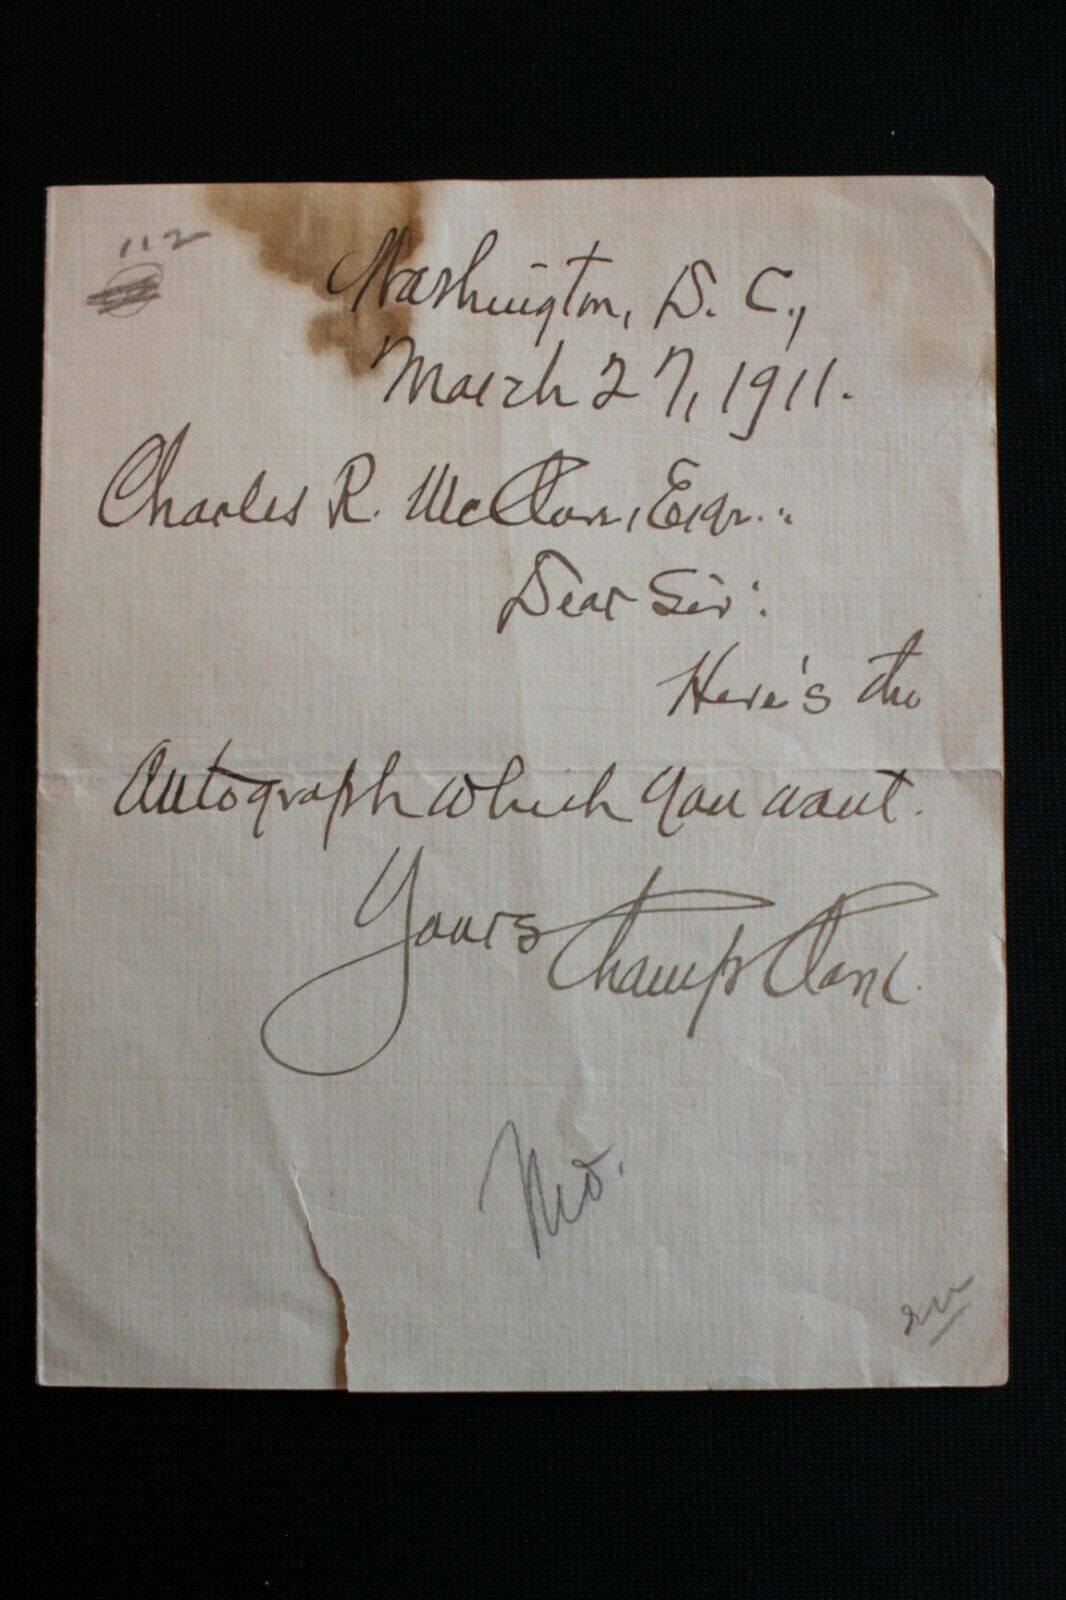 112
Washington, D. C.,
March 27, 1911.
Charles R. McClare, Esqr.:
Dear Sir:
Here's the
Autograph which you want.
Yours Champ Clark.
Mo.